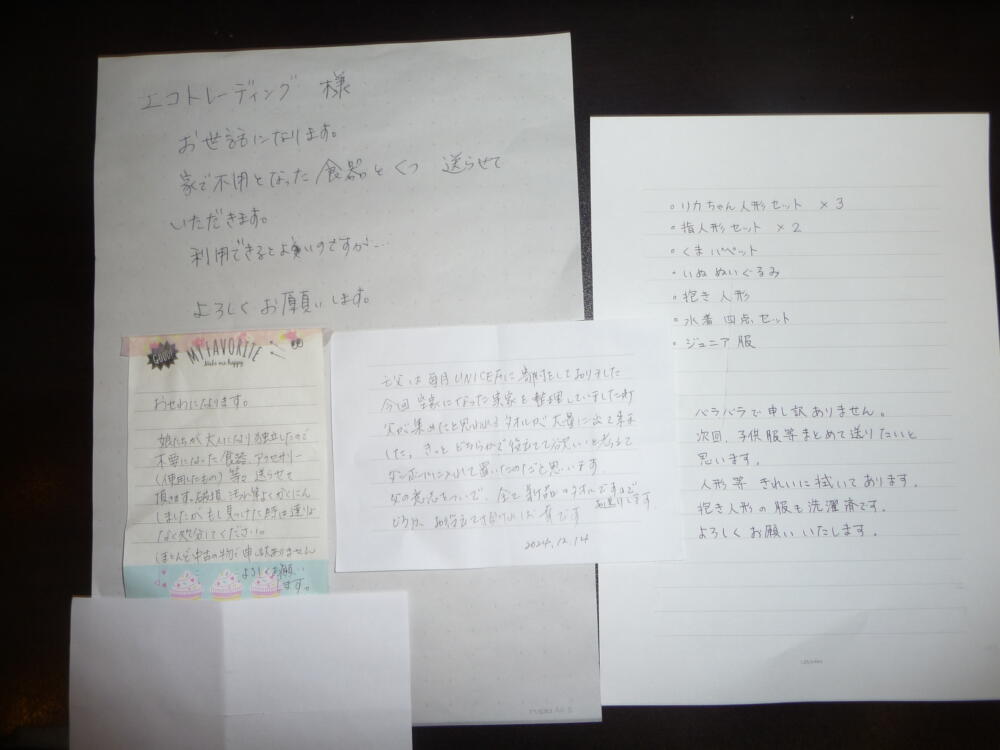 エコトレーディング 様
お世話になります。
家で不用となった食器とくつ 送らせて
いただきます。
利用できると良いのですが…
よろしくお願いします。
GOOD!
MY FAVORITE
おせわになります。
娘たちが大人になり独立したので
不要になった食器、アクセサリー
(使用したもの)等々 送らせて
頂きます。破損、汚れ等よくかくにん
しましたが、もし見つけた時は遠りょ
なく処分してください。
ほとんど中古の物で申し訳ありません
よろしくお願い
します。
亡父は毎月UNICEFに寄付をしておりました
今回 空家になった実家を整理していましたが
父が集めたと思われるタオルが大量に出て来ま
した。きっと どちらかで役立てて欲しいと考えて
ダンボールに入れて置いたのだと思います。
父の意志をついで、全て新品のタオルですので
お送りします。
どうか、お役立て頂ければ幸です
2024.12.14
・リカちゃん人形セット ×3
・指人形セット ×2
・くまパペット
・いぬ ぬいぐるみ
・抱き人形
・水着 四点セット
・ジュニア服
バラバラで申し訳ありません。
次回、子供服等まとめて送りたいと
思います。
人形等 きれいに拭いてあります。
抱き人形の服も洗濯済です。
よろしくお願いいたします。